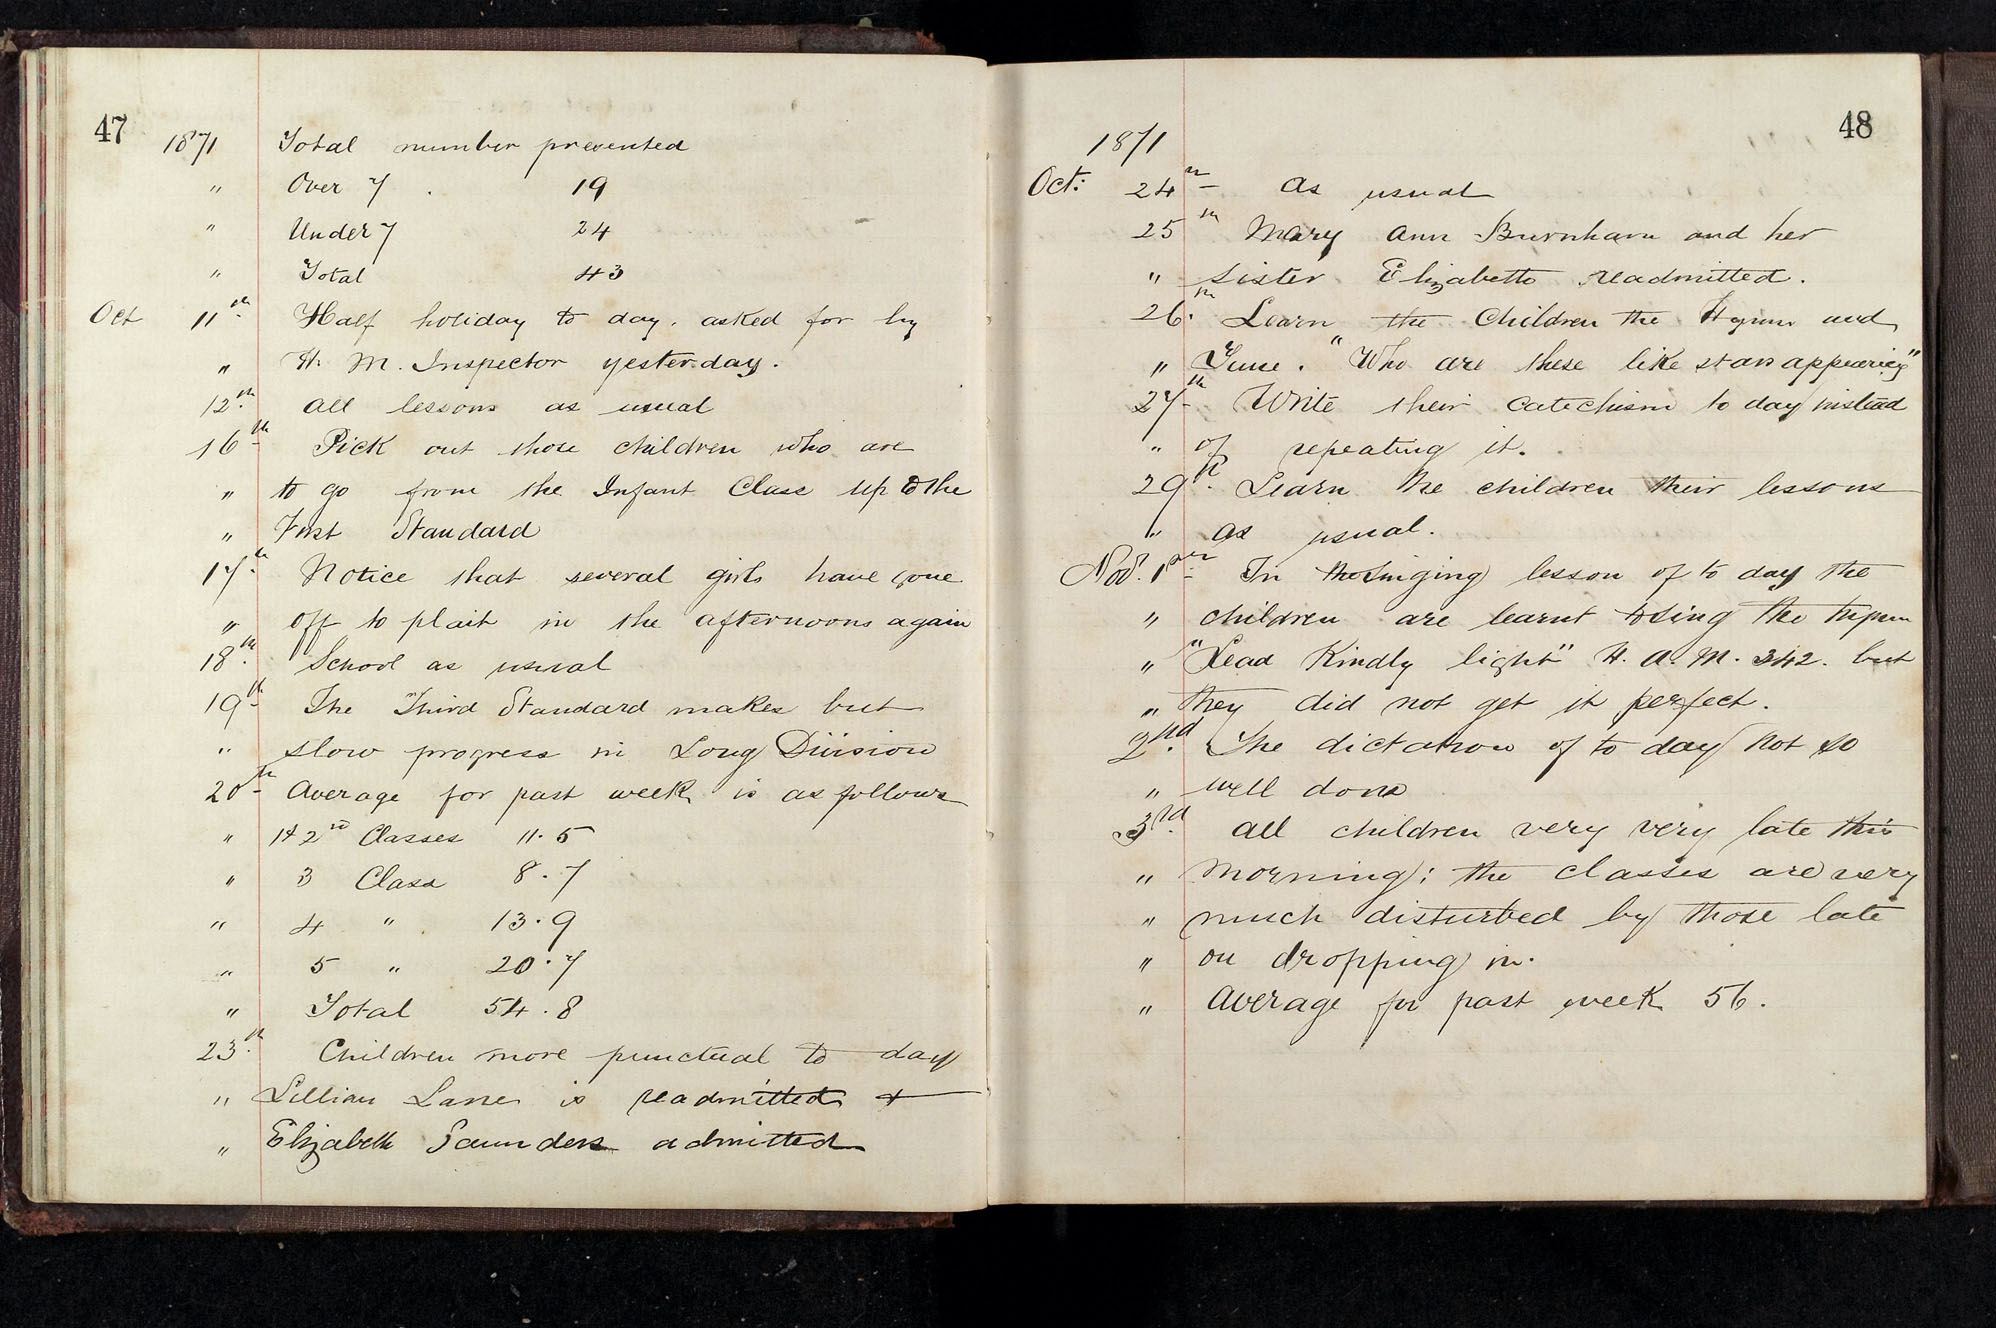 47
1871 Total number presented
" Over 7 . 19
" Under 7 24
" Total 43
Oct 11th Half holiday to day. asked for by
" H. M. Inspector yesterday.
12th all lessons as usual
16th Pick out those children who are
" to go from the Infant Class up to the
" First Standard
17th Notice that several girls have gone
" off to plait in the afternoons again
18th School as usual
19th The Third Standard makes but
" slow progress in Long Division
20th Average for past week is as follows
" 1 & 2nd Classes 11.5
" 3 Class 8.7
" 4 " 13.9
" 5 " 20.7
" Total 54.8
23rd Children more punctual to day
" Lillian Lane is readmitted +
" Elizabeth Saunders admitted
48
1871
Oct: 24th as usual
25th Mary Ann Burnham and her
" sister Elizabeth readmitted.
26th Learn the Children the Hymn and
" Tune. "Who are these like stars appearing"
27th Write their catechism to day instead
" of repeating it.
29th Learn the children their lessons
" as usual.
Nov. 1st In the Singing lesson of to day the
" children are learnt to sing the hymn
" "Lead Kindly light" H. A. M. 342. but
" they did not get it perfect.
2nd The dictation of to day not so
" well done
3rd all children very very late this
" morning; the classes are very
" much disturbed by those late
" on dropping in.
" average for past week 56.